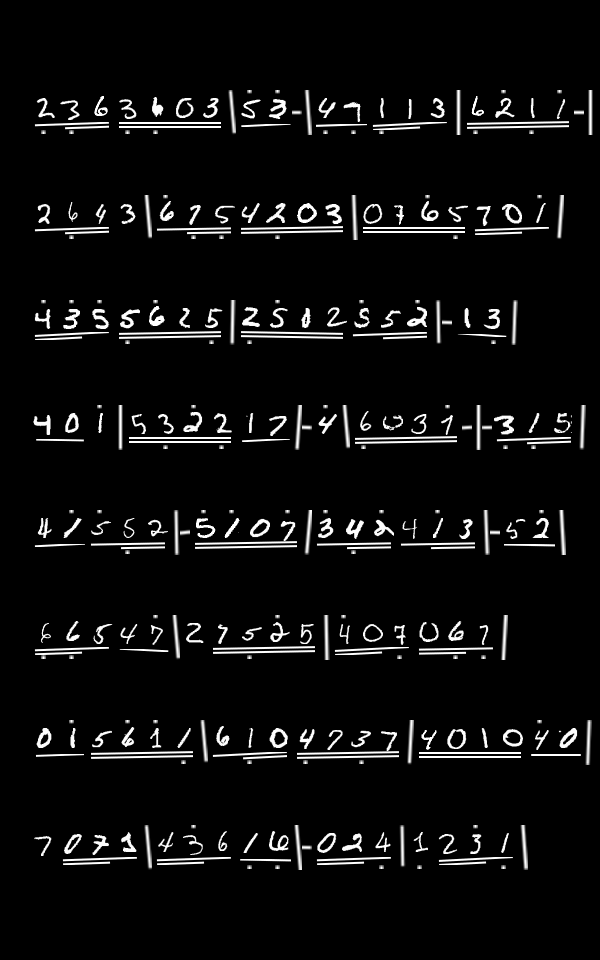 2 3 6 3 6 0 3 | 5 3 - | 4 7 1 1 3 | 6 2 1 1 - |
2 6 4 3 | 6 7 5 4 2 0 3 | 0 7 6 5 7 0 1 |
4 3 5 5 6 2 5 | 2 5 1 0 2 5 5 2 | - 1 3 |
4 0 1 | 5 3 2 2 1 7 | - 4 | 6 0 3 1 - | - 3 1 5 |
4 1 5 5 2 | - 5 1 0 7 | 3 4 2 4 1 3 | - 5 2 |
6 6 5 4 7 | 2 7 5 2 5 | 4 0 7 0 6 1 |
0 1 5 6 1 1 | 6 1 0 4 7 3 7 | 4 0 1 0 4 0 |
7 0 7 1 | 4 3 6 1 6 | - 0 2 4 | 1 2 3 1 |